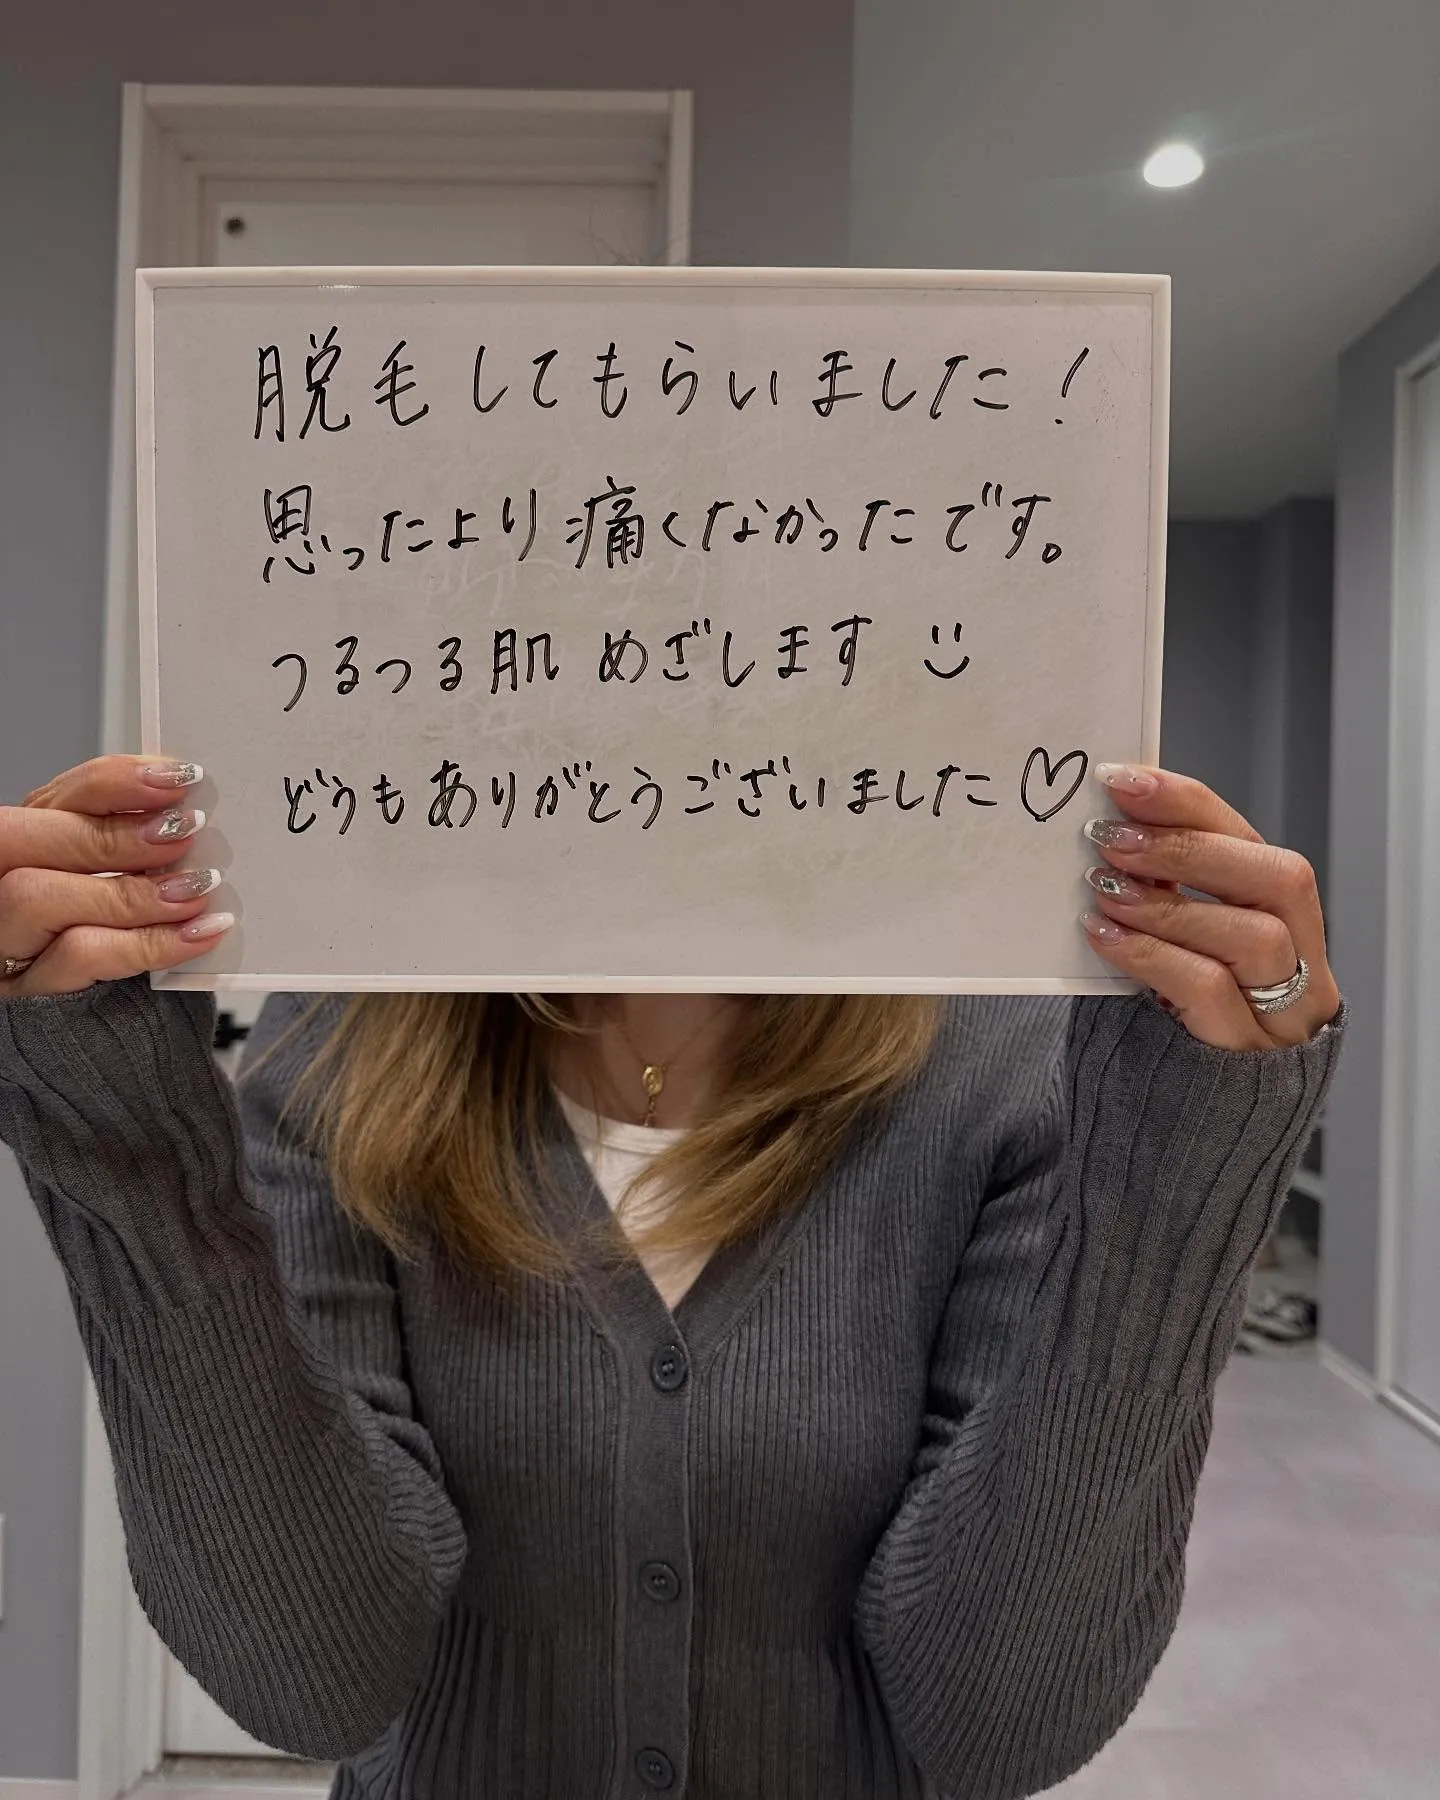 脱毛してもらいました!
思ったより痛くなかったです。
つるつる肌 めざします ¨̮
どうもありがとうございました♡